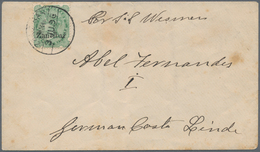 Zanzibar
Per S.S. Wissmann
Abel Fernandes
I
German Coast Lindi